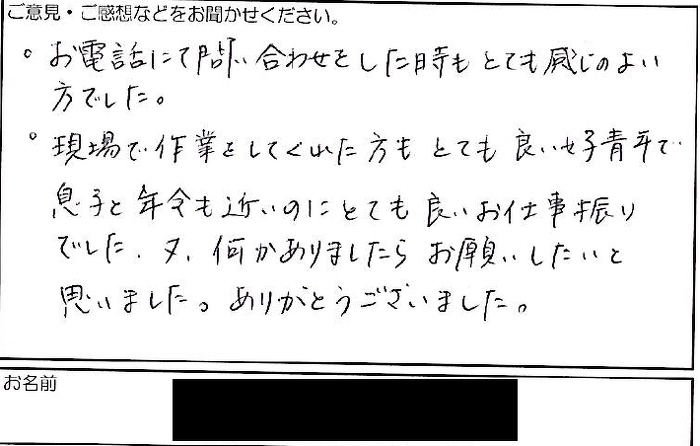 ご意見・ご感想などをお聞かせください。
。お電話にて問い合わせをした時もとても感じのよい
方でした。
。現場で作業をしてくれた方もとても良い好青年で
息子と年令も近いのにとても良いお仕事振り
でした。又、何かありましたらお願いしたいと
思いました。ありがとうございました。
お名前